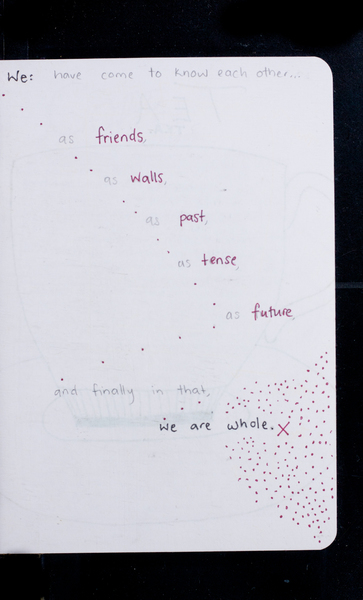 We: have come to know each other...
as friends,
as walls,
as past,
as tense,
as future,
and finally in that,
we are whole.